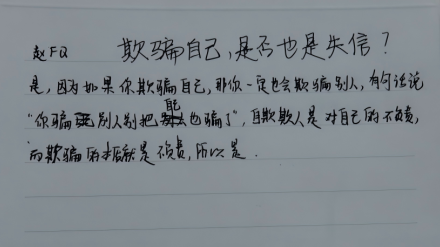 赵FQ 欺骗自己，是否也是失信？
是，因为如果你欺骗自己，那你一定也会欺骗别人，有句话说
"你骗别人别把自己也骗了"，自欺欺人是对自己的不负责，
而欺骗的本质就是不负责，所以是．